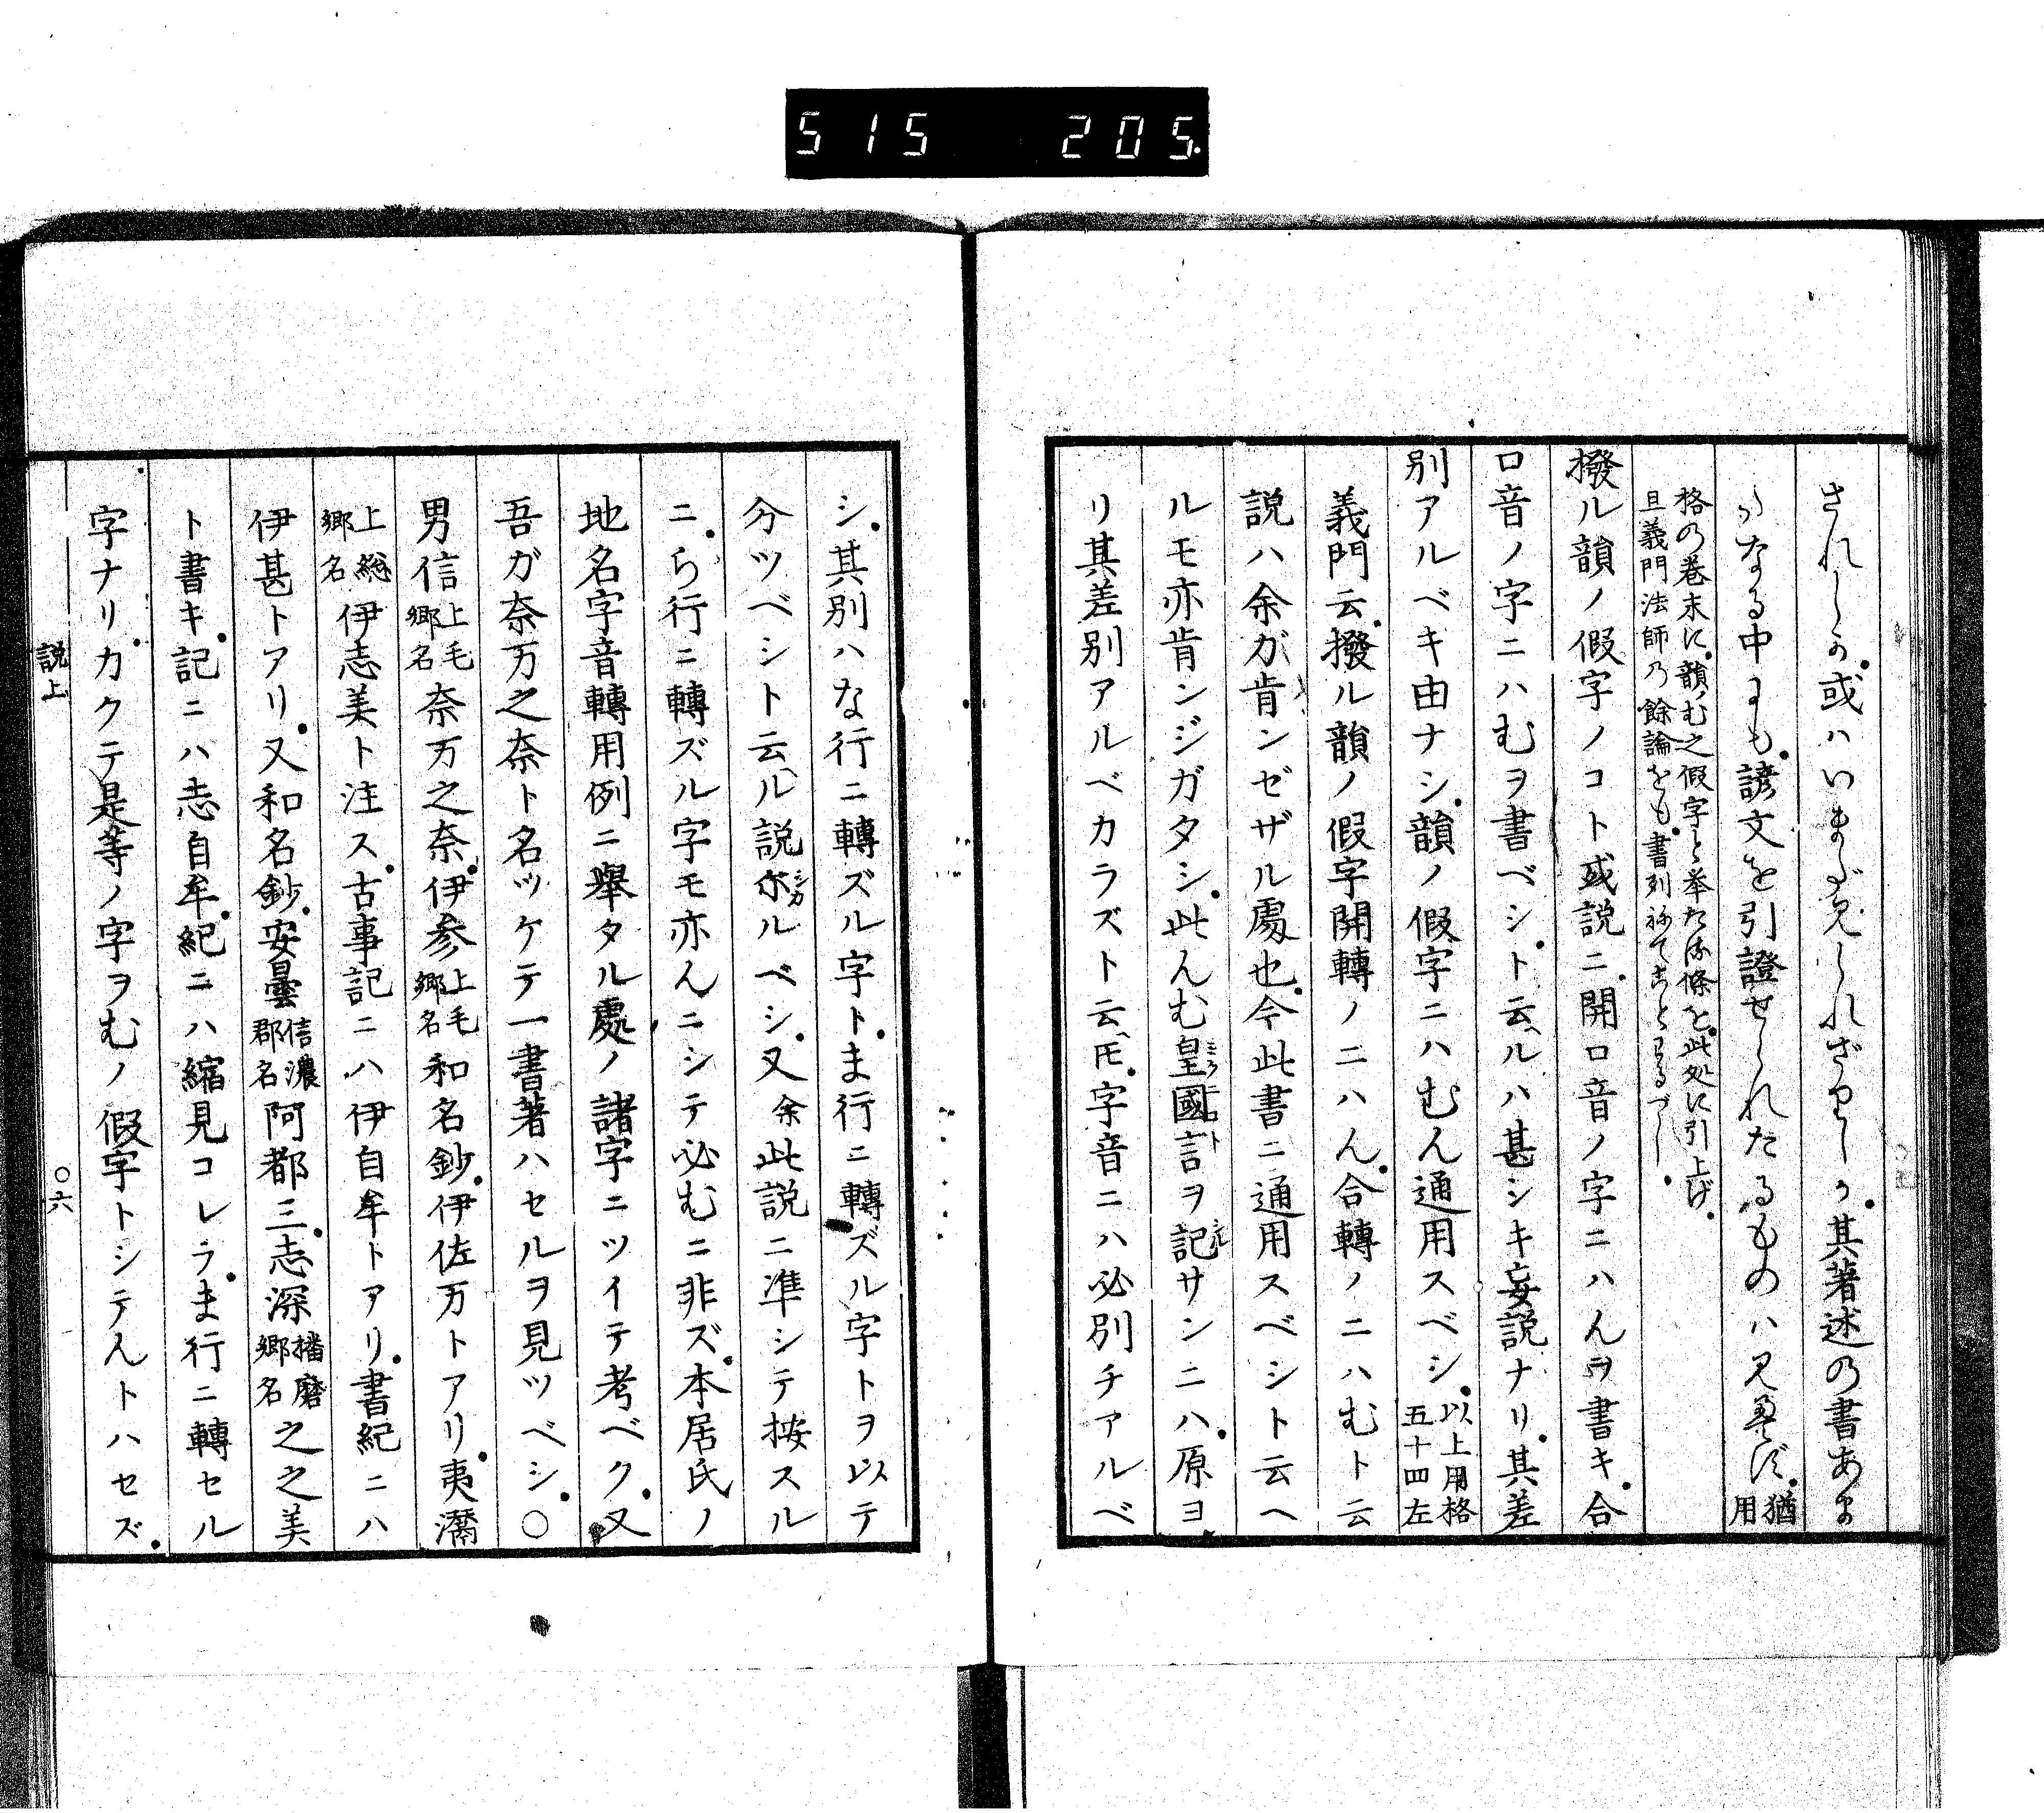 515 205
されしか或ハいまだ見しれざりしか其著述の書あま
たなる中にも諺文を引證せられたるものハ見えず 猶用
格の巻末に韻ノむ之假字と挙たる條を此処に引上げ
且義門法師の餘論をも書列ねてことわるべし
撥ル韻ノ假字ノコト或説ニ開口音ノ字ニハんヲ書キ合
口音ノ字ニハむヲ書ベシト云ルハ甚シキ妄説ナリ其差
別アルベキ由ナシ韻ノ假字ニハむん通用スベシ 以上用格五十四左
義門云撥ル韻ノ假字開轉ノニハん合轉ノニハむト云
説ハ余ガ肯ンゼザル處也今此書ニ通用スベシト云ヘ
ルモ亦肯ンジガタシ此んむ皇國言ヲ記サンニハ原ヨ
リ其差別アルベカラズト云モ字音ニハ必別チアルベ
シ其別ハな行ニ轉ズル字トま行ニ轉ズル字トヲ以テ
分ツベシト云ル説尓ルベシ又余此説ニ準シテ按スル
ニら行ニ轉ズル字モ亦んニシテ必むニ非ズ本居氏ノ
地名字音轉用例ニ擧タル處ノ諸字ニツイテ考ベク又
吾ガ奈万之奈ト名ツケテ一書著ハセルヲ見ツベシ○
男信 上毛郷名 奈万之奈伊参 上毛郷名 和名鈔伊佐万トアリ夷灊
上総郷名 伊志美ト注ス古事記ニハ伊自牟トアリ書紀ニハ
伊甚トアリ又和名鈔安曇 信濃郡名 阿都三志深 播磨郷名 之之美
ト書キ記ニハ志自牟紀ニハ縮見コレラま行ニ轉セル
字ナリカクテ是等ノ字ヲむノ假字トシテんトハセズ
説上 ○六